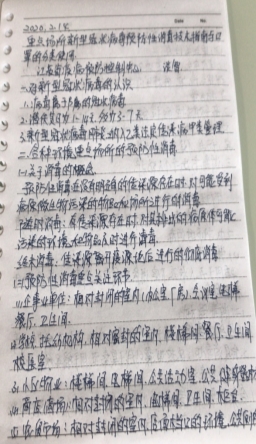 Date No.
2020.2.15
重点场所新型冠状病毒预防性消毒技术指南与口
罩的分类使用
江苏省疾病预防控制中心
一、对新型冠状病毒的认识
1、病毒属于β属的冠状病毒
2、潜伏期为1-14天,多为3-7天
3、新型冠状病毒肺炎纳入乙类法定传染病甲类管理
二、各种环境重点场所的预防性消毒
(一)关于消毒的概念
预防性消毒在没有明确的传染源存在时,对可能受到
病原微生物污染的物品和场所进行的消毒
随时消毒:有传染源存在时,对其排出的病原体可能
污染的环境和物品及时进行消毒
终末消毒:传染源离开疫源地后进行的彻底消毒
(二)预防性消毒重点关注环节
1、企事业单位:相对封闭的室内,办公室、厂房、会议室、电梯
餐厅、卫生间
2、学校、托幼机构:相对密封的室内、楼梯间、餐厅、卫生间
校医室
3、小区物业:楼梯间、电梯间、公共活动室、公交
4、商店商场:相对封闭的室内、电梯间、卫生间
5、农贸市场:相对封闭的室内